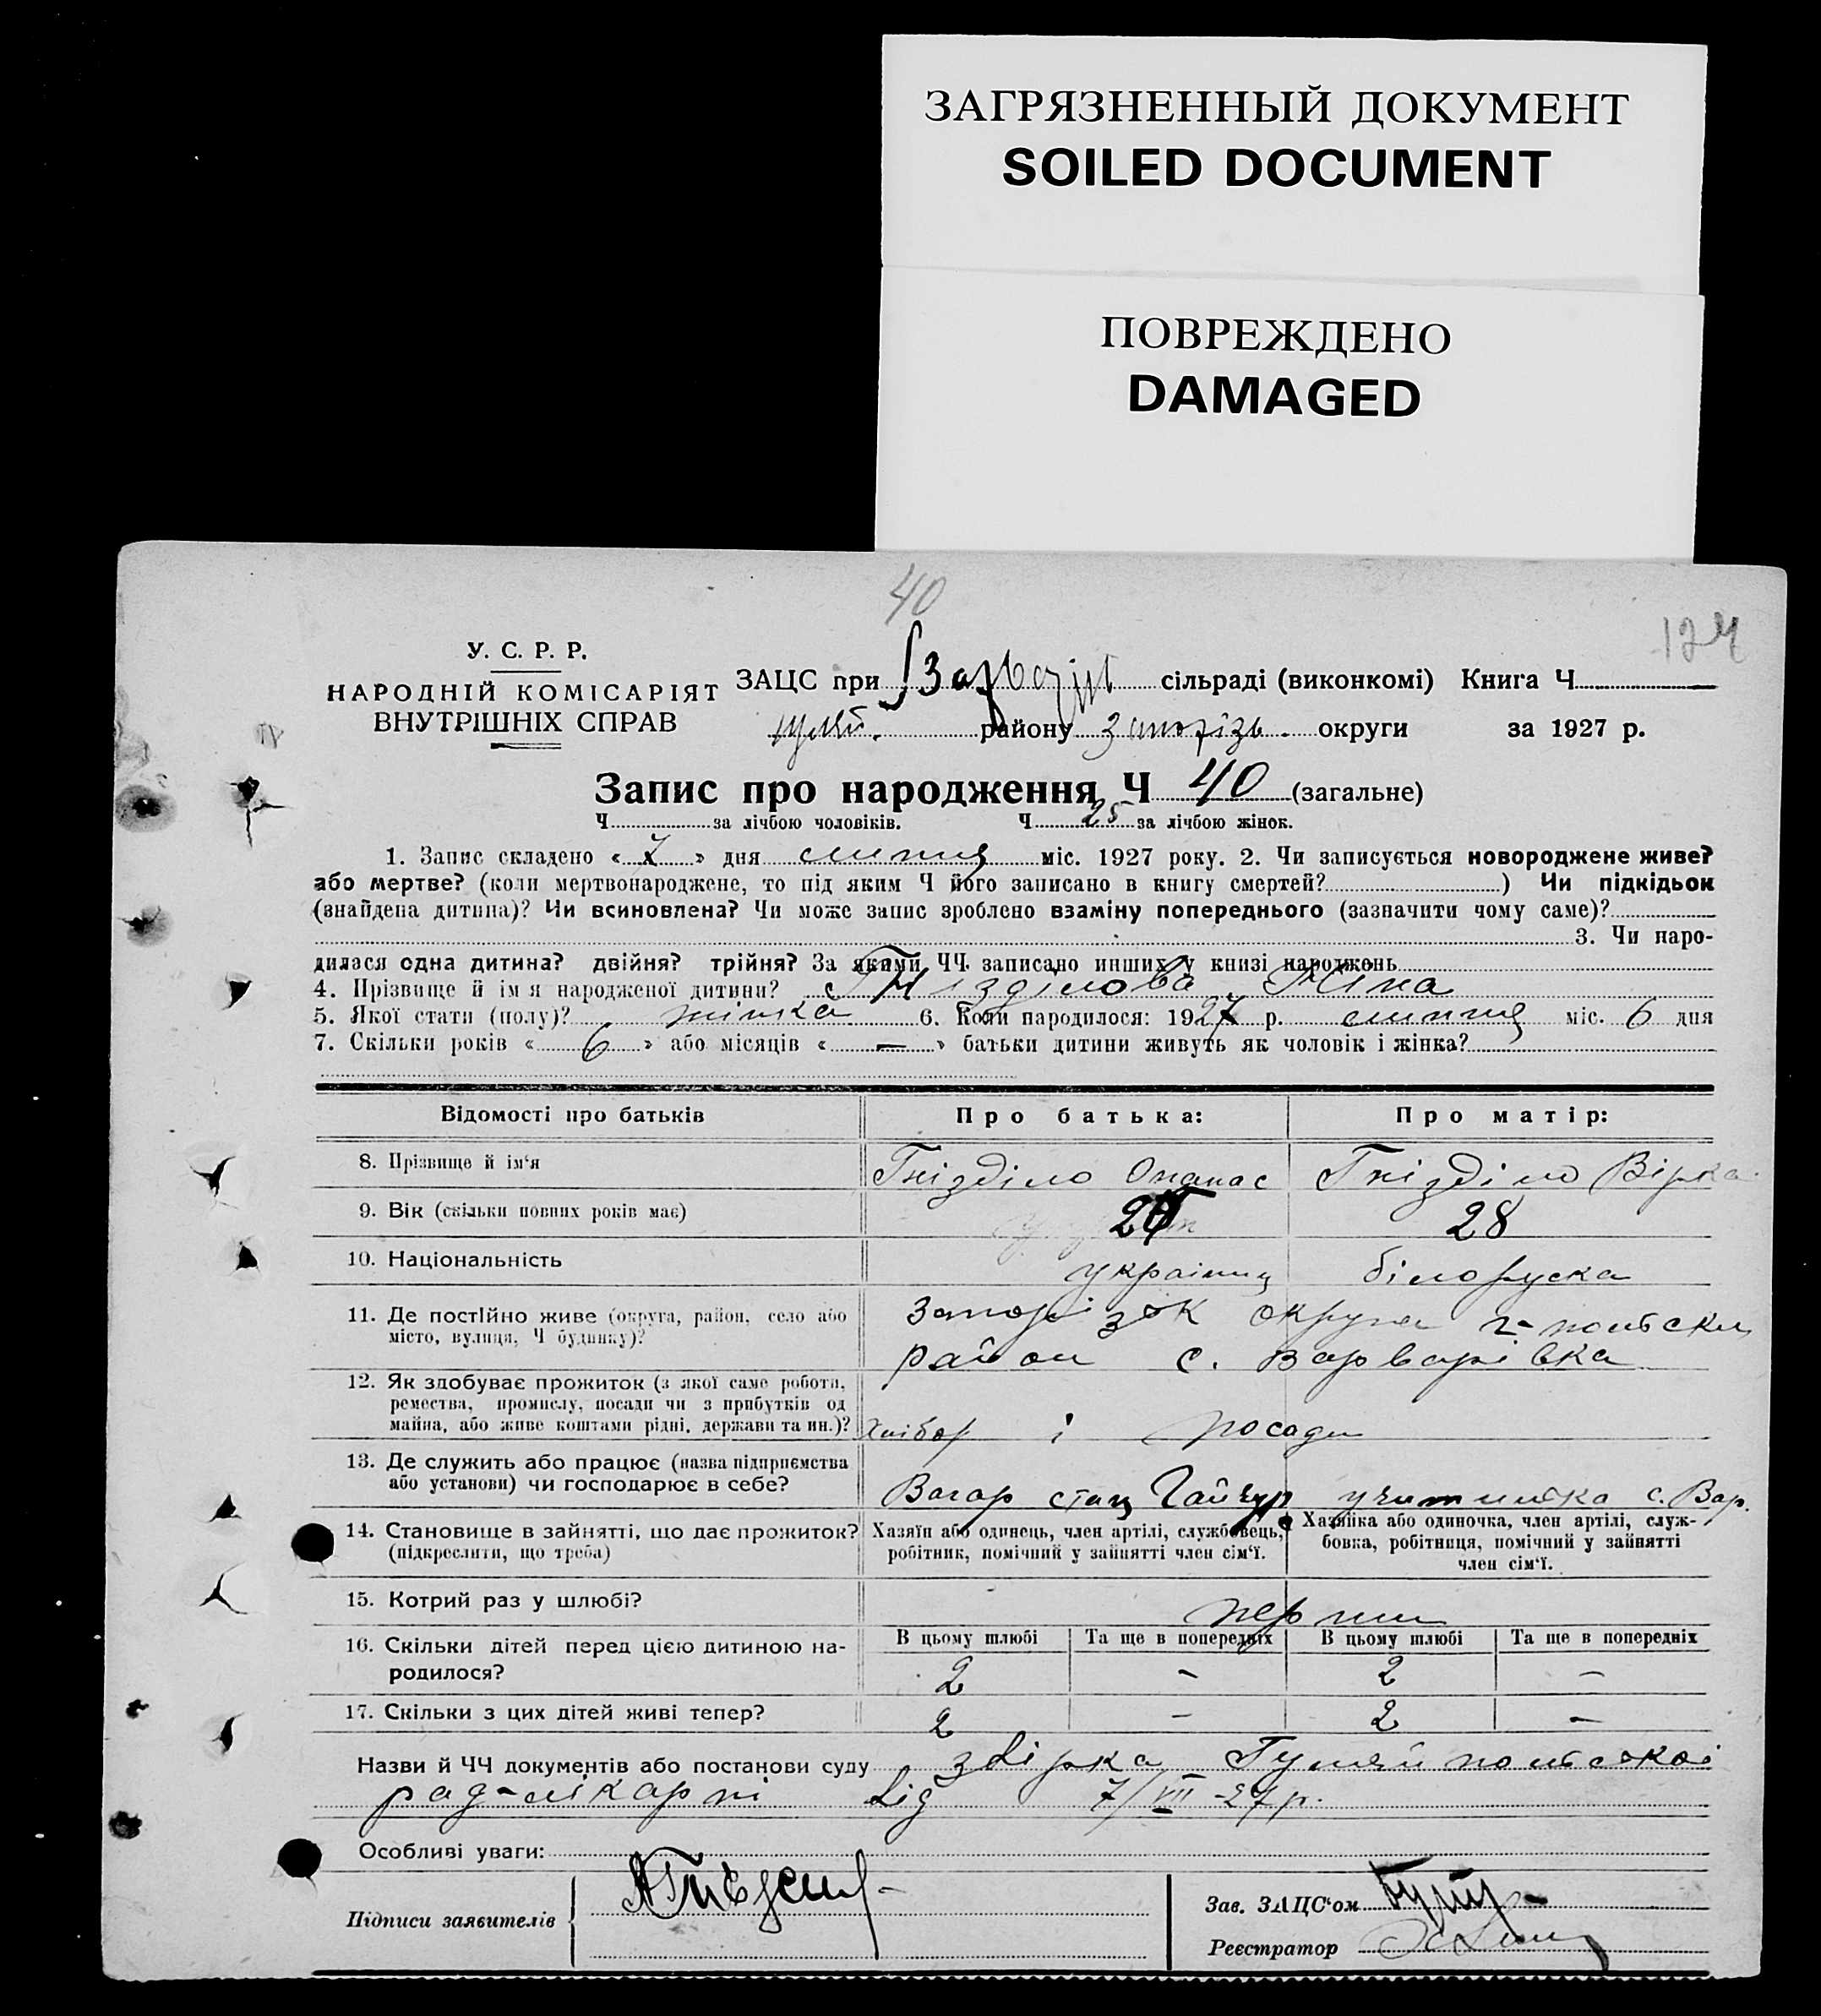 ЗАГРЯЗНЕННЫЙ ДОКУМЕНТ
SOILED DOCUMENT
ПОВРЕЖДЕНО
DAMAGED
40
У. С. Р. Р.
НАРОДНІЙ КОМІСАРІЯТ
ВНУТРІШНІХ СПРАВ
ЗАЦС при сільраді (виконкомі) Книга Ч
району округи за 1927 р.
Запис про народження Ч 40 (загальне)
Ч за лічбою чоловіків. Ч 25 за лічбою жінок.
1. Запис складено « 7 » дня липня міс. 1927 року. 2. Чи записується новороджене живе?
або мертве? (коли мертвонароджене, то під яким Ч його записано в книгу смертей? ) Чи підкідьок
(знайдена дитина)? Чи всиновлена? Чи може запис зроблено взаміну попереднього (зазначити чому саме)?
3. Чи наро-
дилася одна дитина? двійня? трійня? За якими ЧЧ записано инших у книзі народжень
4. Прізвище й імя народженої дитини? Гнізділова Ніна
5. Якої стати (полу)? жінка 6. Коли народилося: 1927 р. липня міс. 6 дня
7. Скільки років « 6 » або місяців « — » батьки дитини живуть як чоловік і жінка?
Відомості про батьків Про батька: Про матір:
8. Прізвище й ім'я Гнізділо Опанас Гнізділо Вірка
9. Вік (скільки повних років має) 28
10. Національність українц білоруска
11. Де постійно живе (округа, район, село або Запорізьк округа г-польськ
місто, вулиця, Ч будинку)? район с. Варварівка
12. Як здобуває прожиток (з якої саме роботи,
ремества, промислу, посади чи з прибутків од
майна, або живе коштами рідні, держави та ин.)? Хлібор і посади
13. Де служить або працює (назва підприємства
або установи) чи господарює в себе? Вагар станц Гайчур учителька с. Вар.
14. Становище в зайнятті, що дає прожиток? Хазяїн або одинець, член артілі, службовець, Хазяйка або одиночка, член артілі, служ-
(підкреслити, що треба) робітник, помічний у зайнятті член сім'ї. бовка, робітниця, помічний у зайнятті
член сім'ї.
15. Котрий раз у шлюбі? перший
16. Скільки дітей перед цією дитиною на- В цьому шлюбі Та ще в попередніх В цьому шлюбі Та ще в попередніх
родилося? 2 - 2 -
17. Скільки з цих дітей живі тепер? 2 - 2 -
Назви й ЧЧ документів або постанови суду звірка Гуляйпольської
рад-лікарні від 7/VII-27 р.
Особливі уваги:
Підписи заявителів
Зав. ЗАЦС'ом
Реєстратор